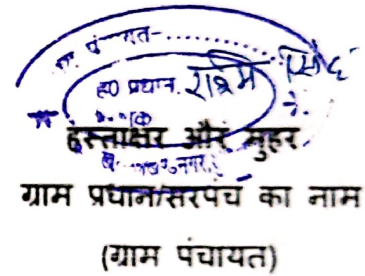 ग्रा० पं०
ह० प्रधान. रश्मि सिंह
हस्ताक्षर और मुहर
ग्राम प्रधान/सरपंच का नाम
(ग्राम पंचायत)